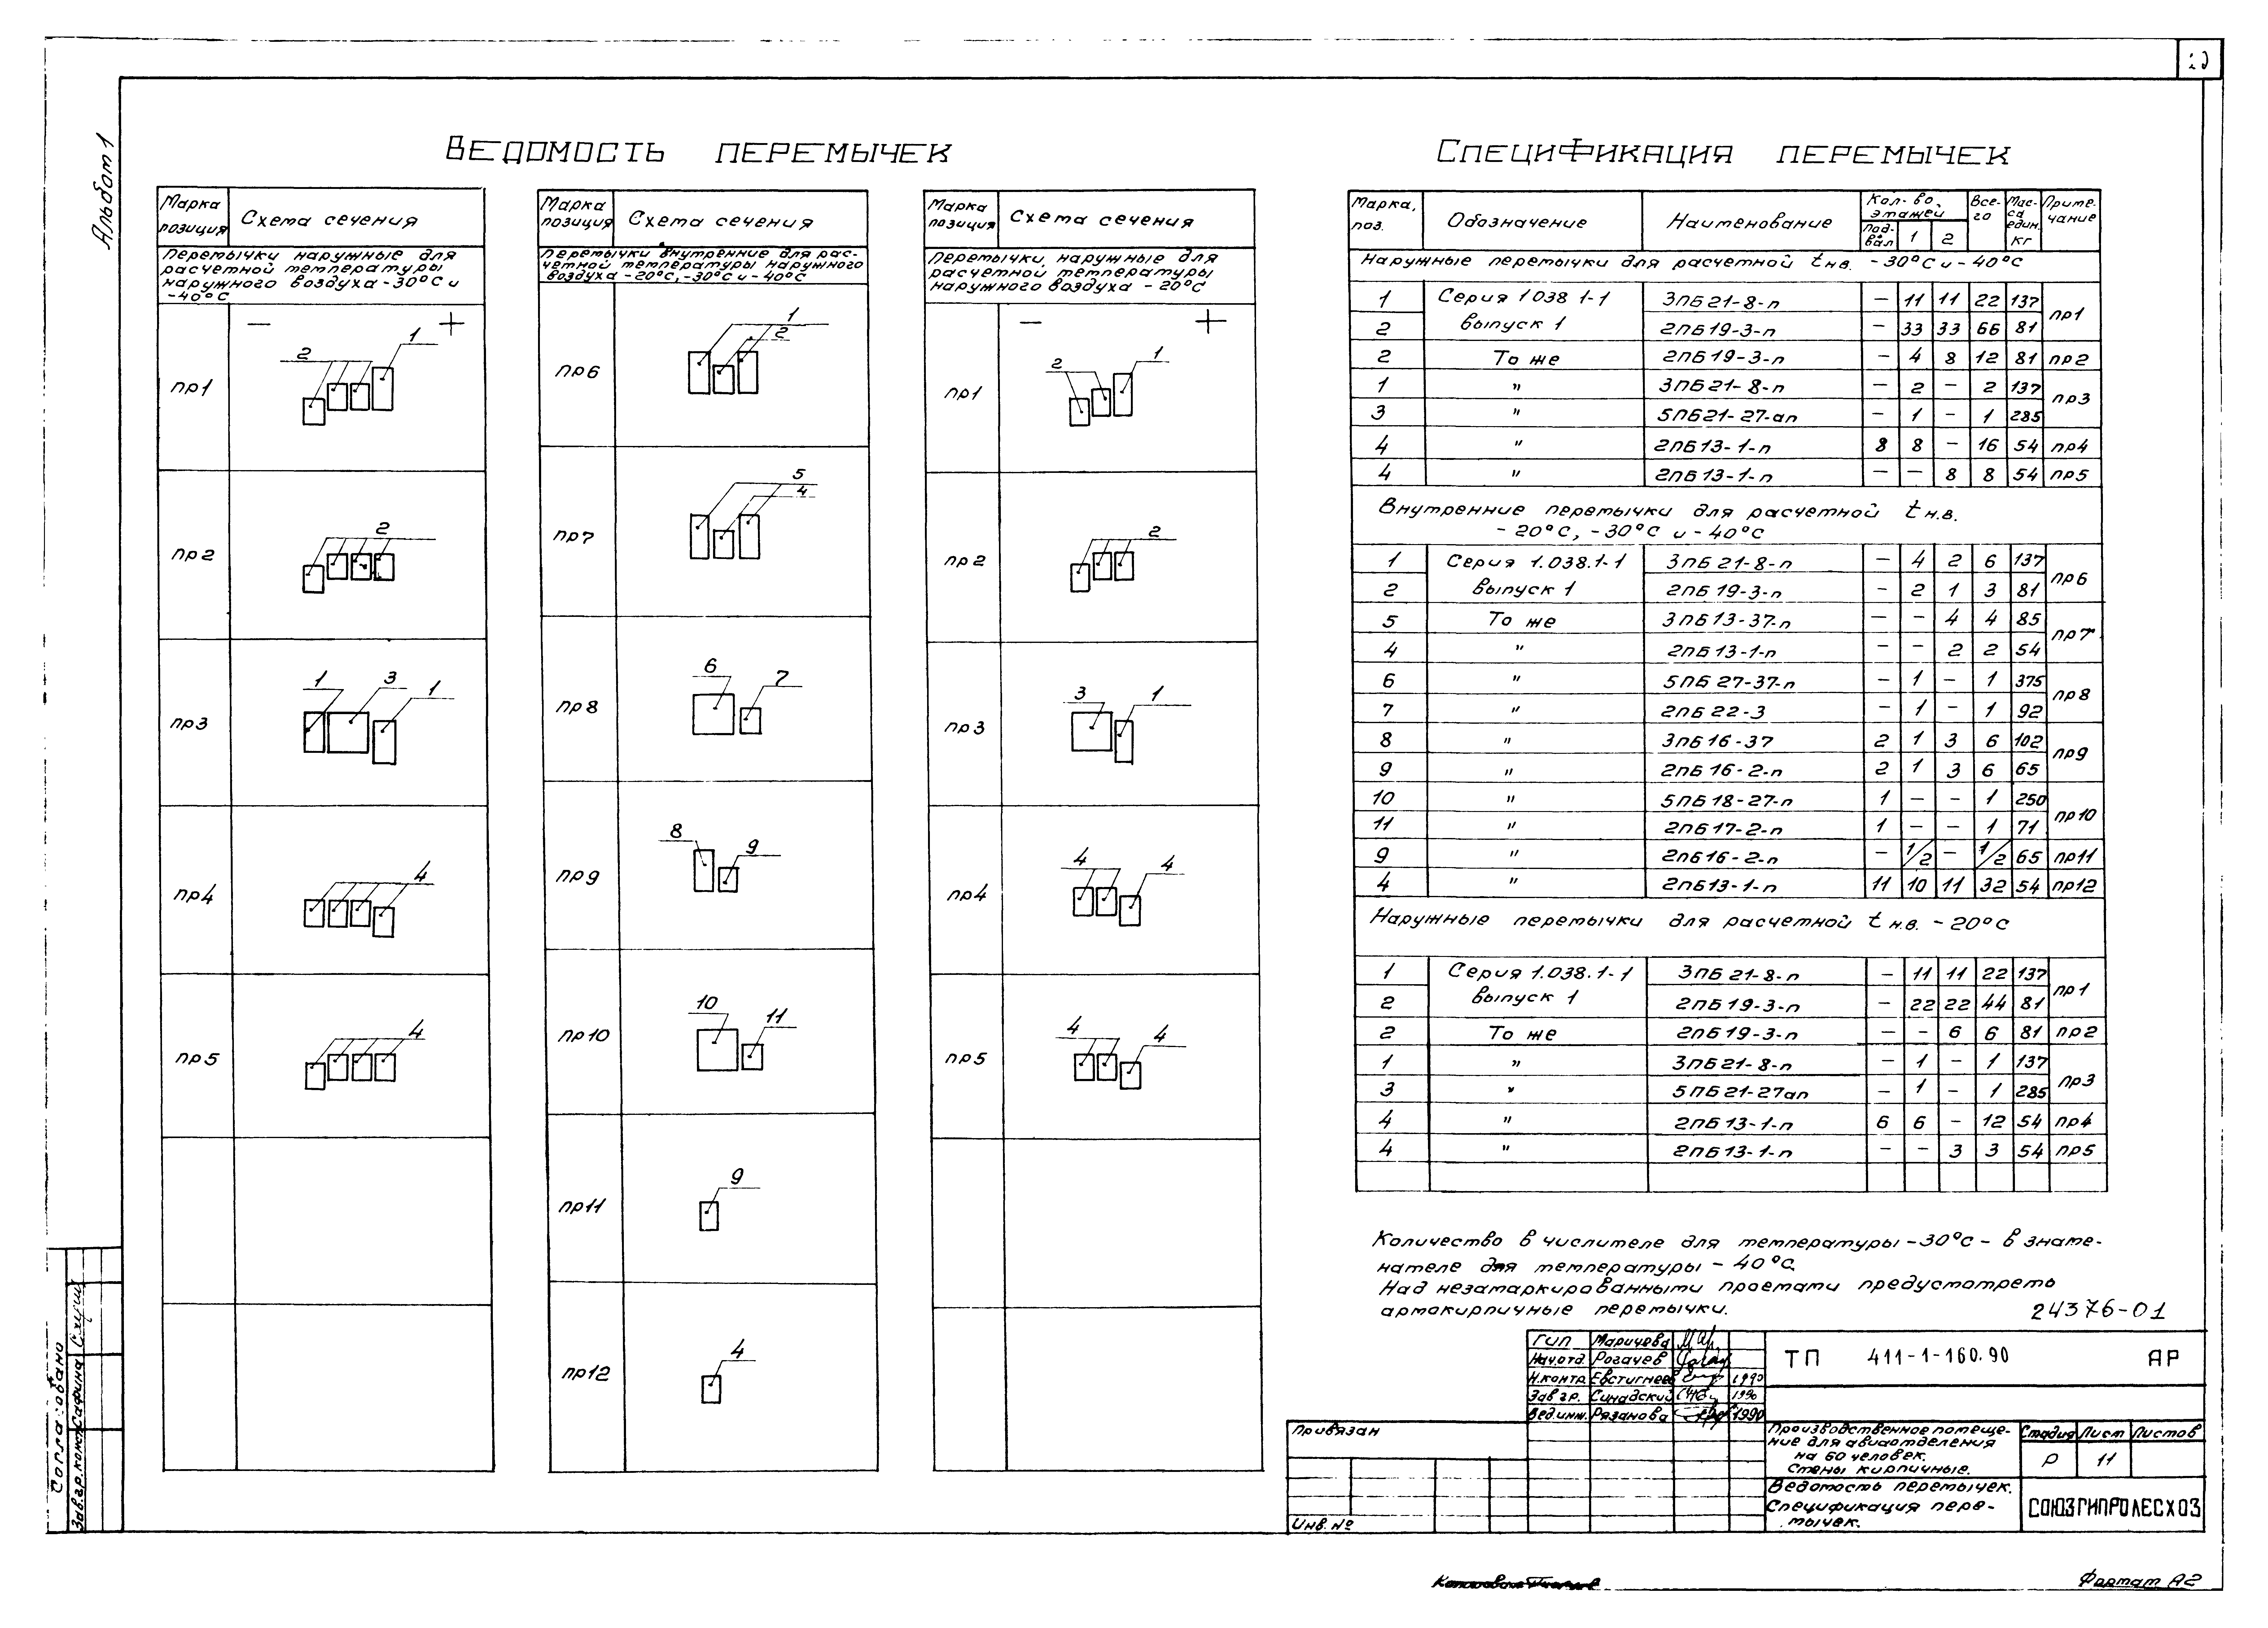 Альбом 1
Ведомость перемычек
Марка позиция Схема сечения
Перемычки наружные для
расчетной температуры
наружного воздуха -30°С и
-40°С
пр1 − + 2 1
пр2 2
пр3 1 3 1
пр4 4
пр5 4
Марка позиция Схема сечения
Перемычки внутренние для рас-
четной температуры наружного
воздуха -20°С, -30°С и -40°С
пр6 1 2
пр7 5 4
пр8 6 7
пр9 8 9
пр10 10 11
пр11 9
пр12 4
Марка позиция Схема сечения
Перемычки наружные для
расчетной температуры
наружного воздуха -20°С
пр1 − + 2 1
пр2 2
пр3 3 1
пр4 4 4
пр5 4 4
Спецификация перемычек
Марка, поз. Обозначение Наименование Кол-во, этажей Под-вал 1 2 Все-го Мас-са един. кг Приме-чание
Наружные перемычки для расчетной tн.в. -30°С и -40°С
1 Серия 1 038 1-1 3ПБ21-8-п – 11 11 22 137 пр1
2 выпуск 1 2ПБ19-3-п – 33 33 66 81
2 То же 2ПБ19-3-п – 4 8 12 81 пр2
1 " 3ПБ21-8-п – 2 – 2 137 пр3
3 " 5ПБ21-27-ап – 1 – 1 285
4 " 2ПБ13-1-п 8 8 – 16 54 пр4
4 " 2ПБ13-1-п – – 8 8 54 пр5
Внутренние перемычки для расчетной tн.в.
-20°С, -30°С и -40°С
1 Серия 1.038.1-1 3ПБ21-8-п – 4 2 6 137 пр6
2 выпуск 1 2ПБ19-3-п – 2 1 3 81
5 То же 3ПБ13-37-п – – 4 4 85 пр7
4 " 2ПБ13-1-п – – 2 2 54
6 " 5ПБ27-37-п – 1 – 1 375 пр8
7 " 2ПБ22-3 – 1 – 1 92
8 " 3ПБ16-37 2 1 3 6 102 пр9
9 " 2ПБ16-2-п 2 1 3 6 65
10 " 5ПБ18-27-п 1 – – 1 250 пр10
11 " 2ПБ17-2-п 1 – – 1 71
9 " 2ПБ16-2-п – 1/2 – 1/2 65 пр11
4 " 2ПБ13-1-п 11 10 11 32 54 пр12
Наружные перемычки для расчетной tн.в. -20°С
1 Серия 1.038.1-1 3ПБ21-8-п – 11 11 22 137 пр1
2 выпуск 1 2ПБ19-3-п – 22 22 44 81
2 То же 2ПБ19-3-п – – 6 6 81 пр2
1 " 3ПБ21-8-п – 1 – 1 137 пр3
3 " 5ПБ21-27ап – 1 – 1 285
4 " 2ПБ13-1-п 6 6 – 12 54 пр4
4 " 2ПБ13-1-п – – 3 3 54 пр5
Количество в числителе для температуры -30°С - в знаме-
нателе для температуры -40°С
Над незамаркированными проемами предусмотреть
армокирпичные перемычки.
24376-01
ГИП Маричева
Нач.отд. Рогачев
Н.контр. Евстигнеев 1990
Зав гр. Синадский 1990
Вед инж. Рязанова 1990
ТП 411-1-160.90 АР
Привязан
Инв. №
Производственное помеще-
ние для авиаотделения
на 60 человек.
Стены кирпичные.
Стадия Лист Листов
Р 11
Ведомость перемычек.
Спецификация пере-
мычек.
СОЮЗГИПРОЛЕСХОЗ
Согласовано
Зав.гр.конст Сафина
Формат А2